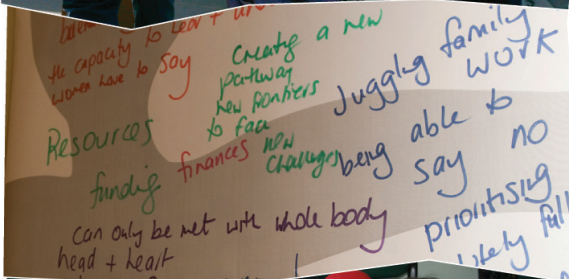 the capacity to
women have to say
Creating a new
pathway
new frontiers
to face
new
challenges
Resources
funding finances
Juggling family
work
being able to
say no
prioritising
can only be met with whole body
head + heart